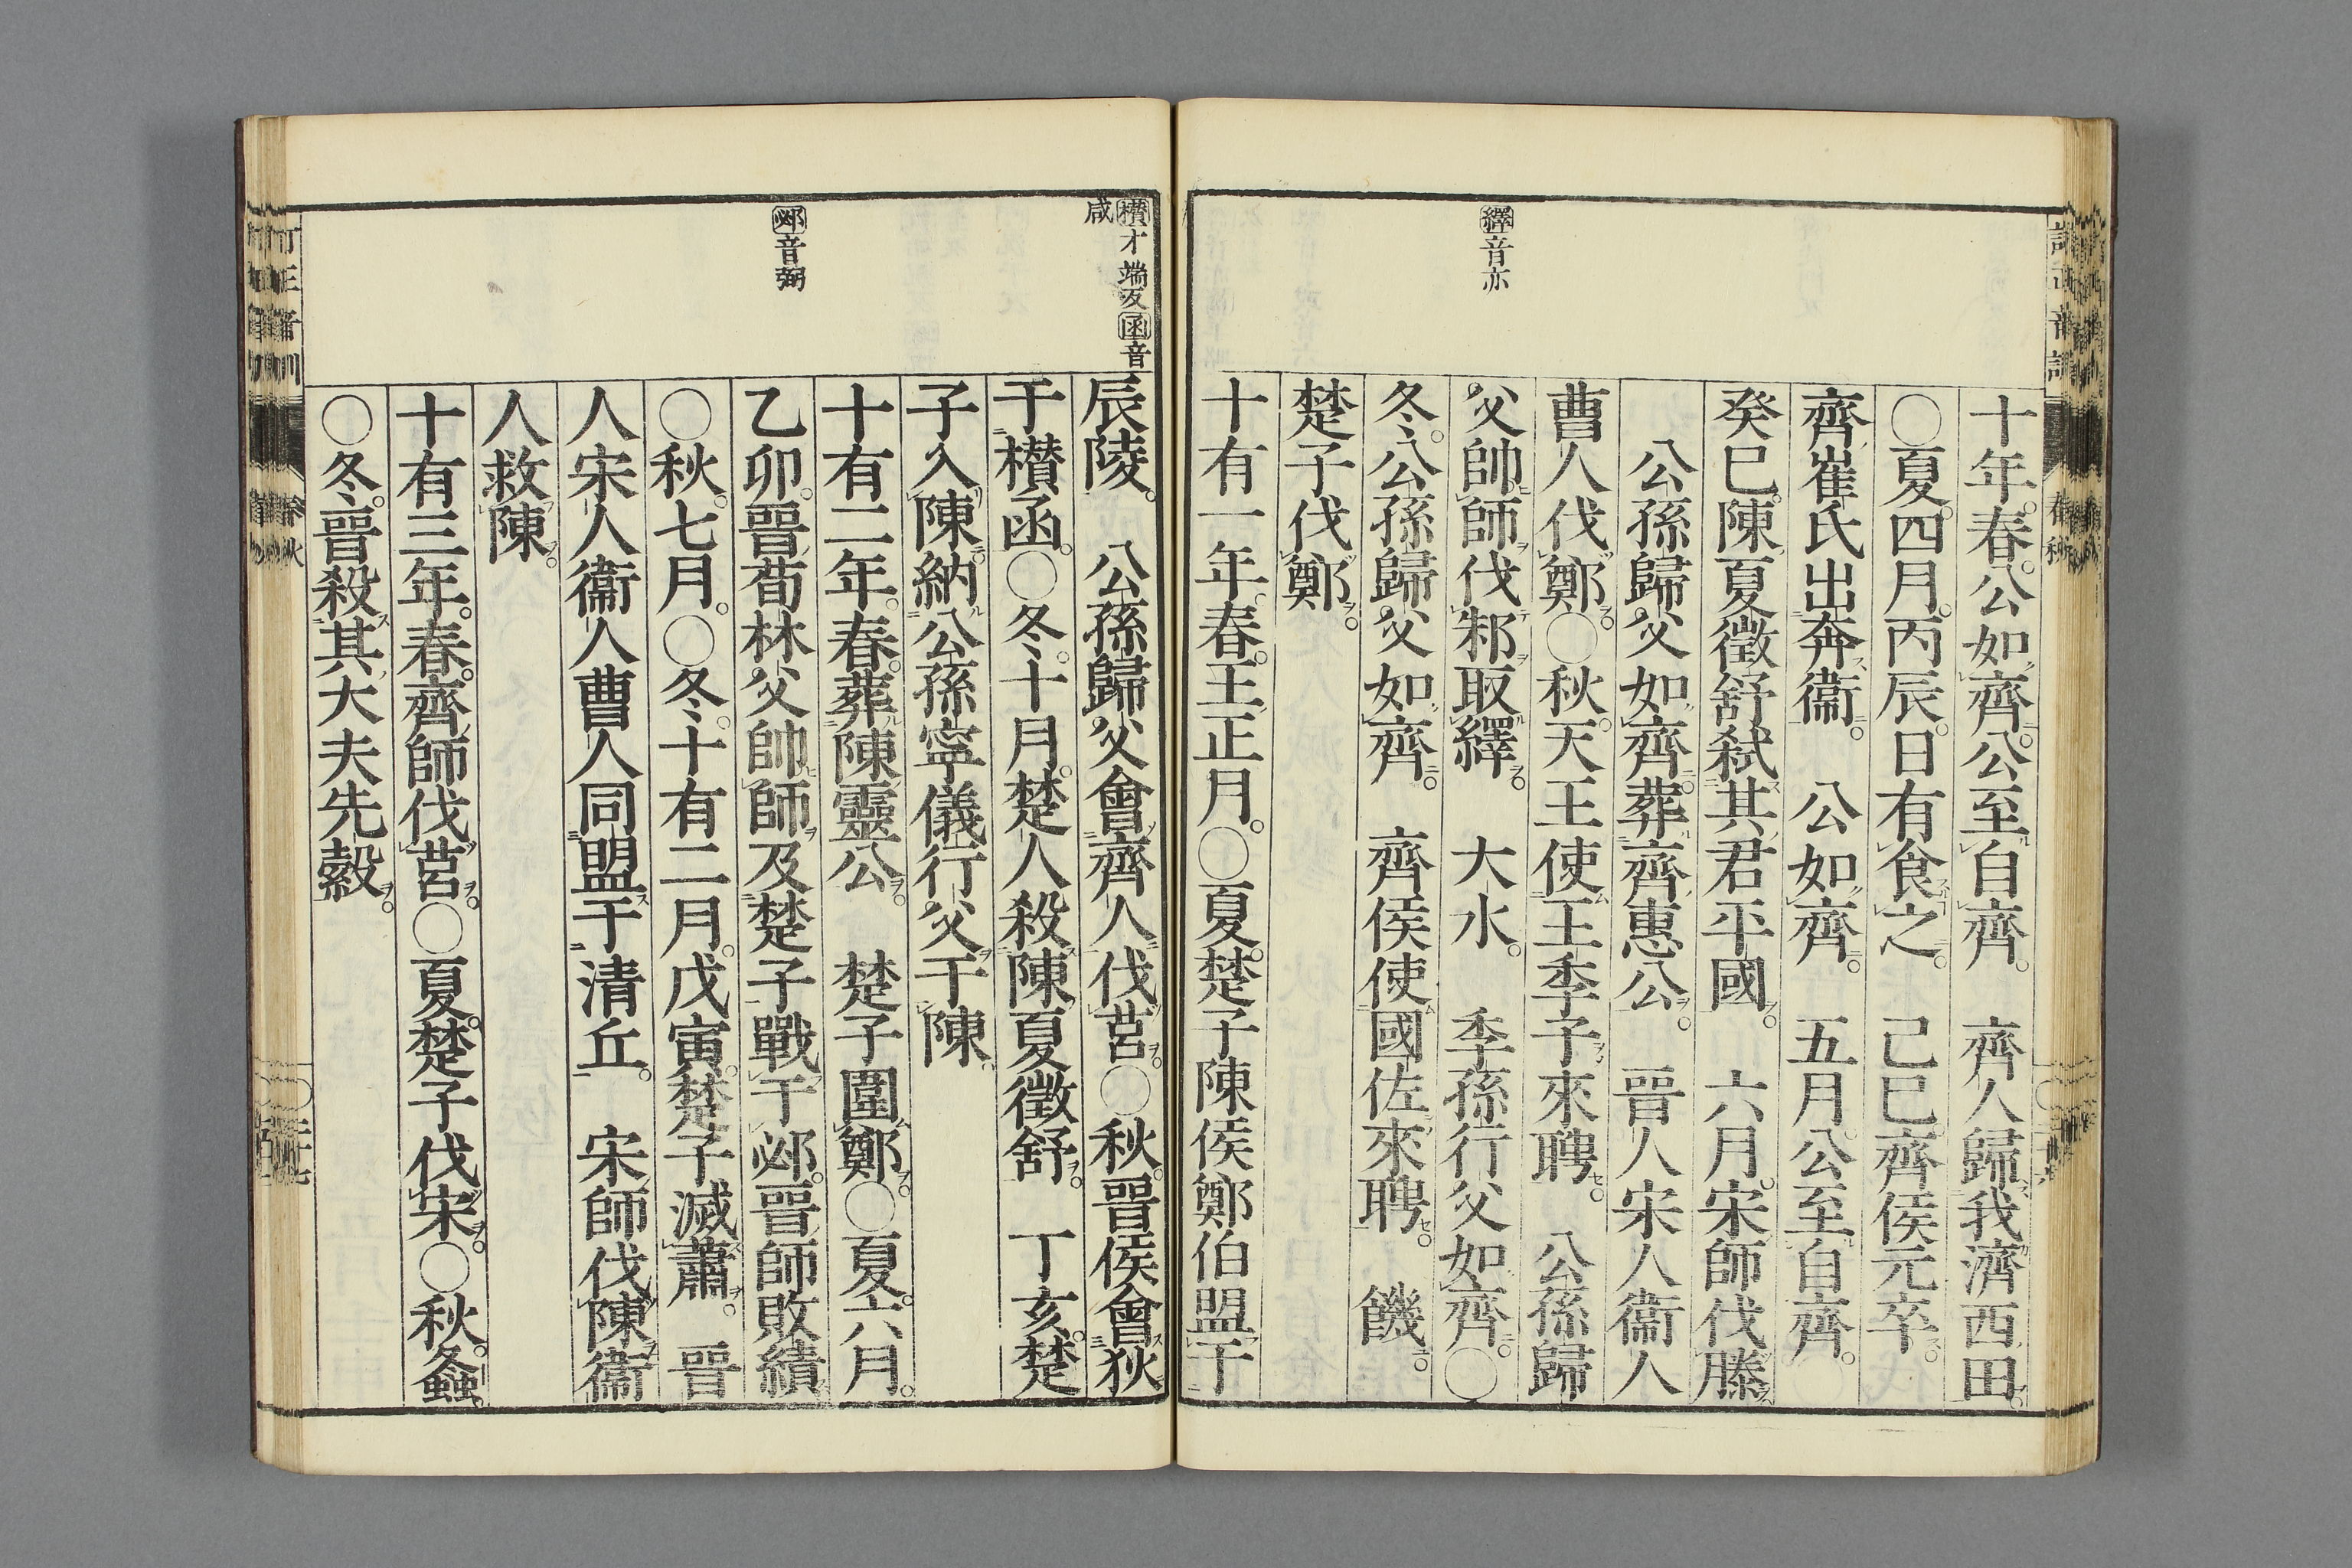 繹音亦
十年春公如齊公至自齊　齊人歸我濟西田
○夏四月丙辰日有食之　己巳齊侯元卒
齊崔氏出奔衞　公如齊　五月公至自齊
癸巳陳夏徵舒弑其君平國　六月宋師伐滕
公孫歸父如齊葬齊惠公　晉人宋人衞人
曹人伐鄭○秋天王使王季子來聘　公孫歸
父帥師伐邾取繹　大水　季孫行父如齊○
冬公孫歸父如齊　齊侯使國佐來聘　饑
楚子伐鄭
十有一年春王正月○夏楚子陳侯鄭伯盟于
欑才端反函音
咸
邲音弼
辰陵　公孫歸父會齊人伐莒○秋晉侯會狄
于欑函○冬十月楚人殺陳夏徵舒　丁亥楚
子入陳納公孫寧儀行父于陳
十有二年春葬陳靈公　楚子圍鄭○夏六月
乙卯晉荀林父帥師及楚子戰于邲晉師敗績
○秋七月○冬十有二月戊寅楚子滅蕭　晉
人宋人衞人曹人同盟于清丘　宋師伐陳衞
人救陳
十有三年春齊師伐莒○夏楚子伐宋○秋螽
○冬晉殺其大夫先縠
訂正音訓
春秋